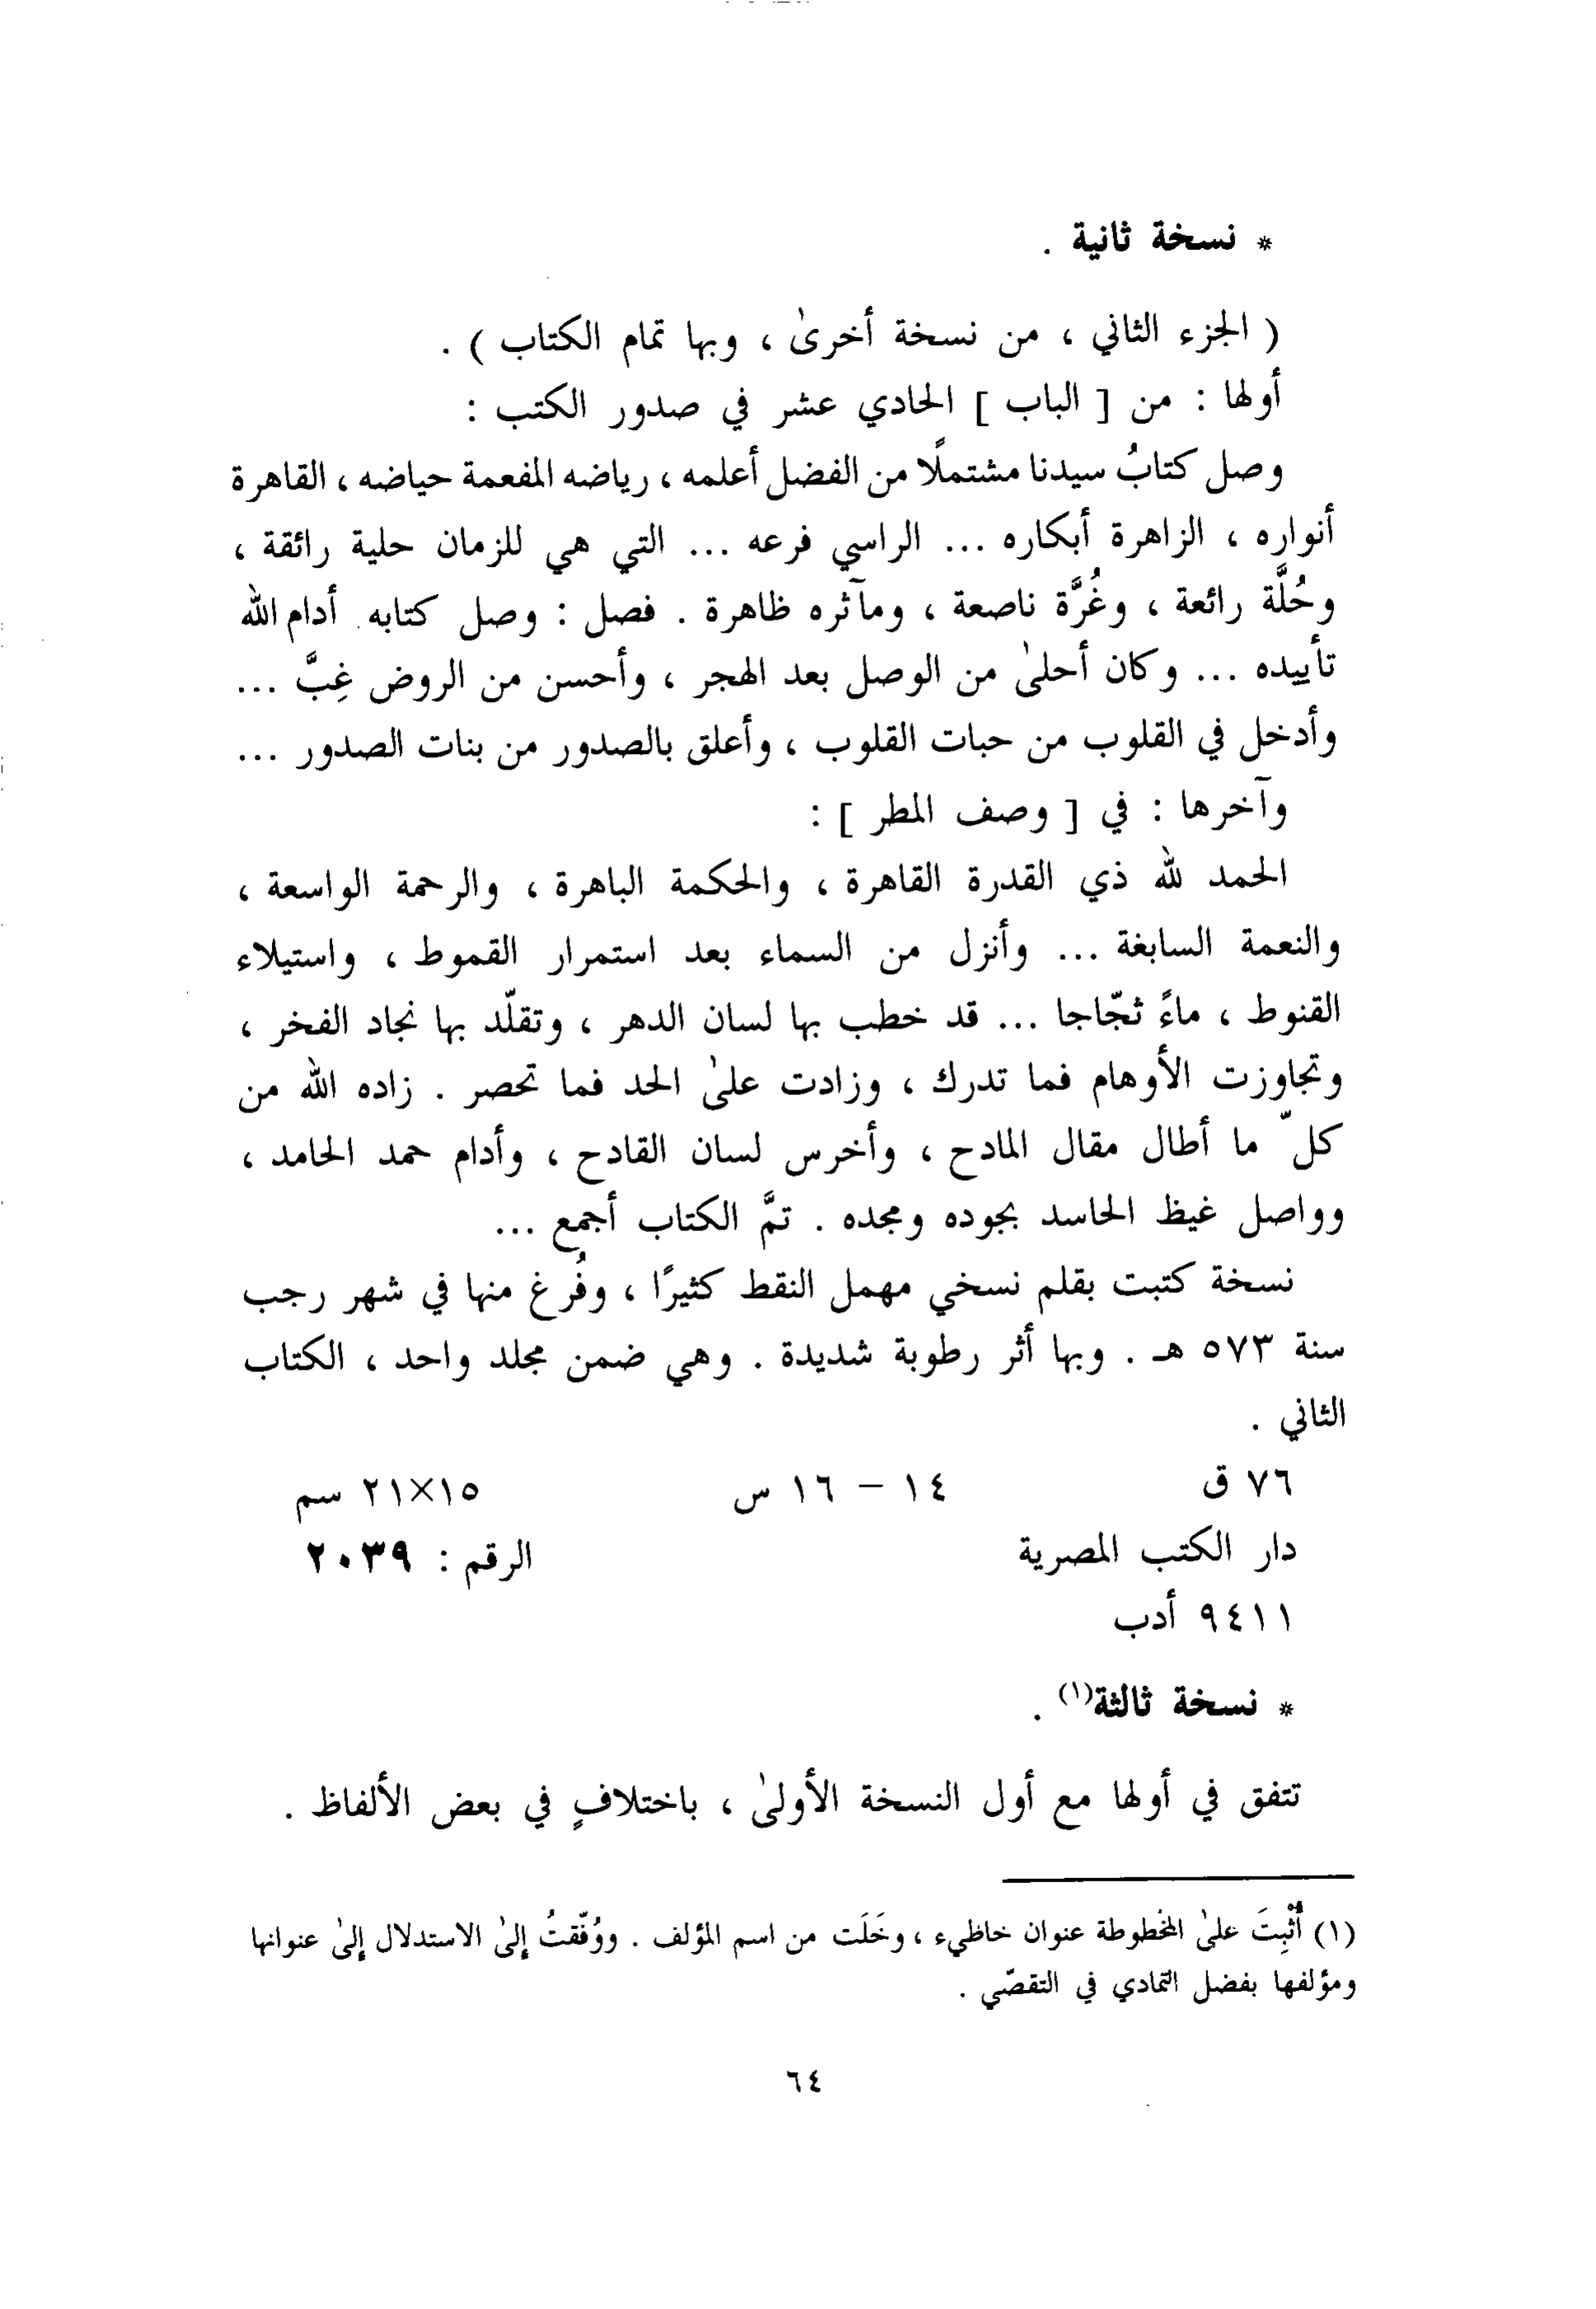 * نسخة ثانية .
( الجزء الثاني ، من نسخة أخرىٰ ، وبها تمام الكتاب ) .
أولها : من [ الباب ] الحادي عشر في صدور الكتب :
وصل كتابُ سيدنا مشتملًا من الفضل أعلمه ، رياضه المفعمة حياضه ، القاهرة
أنواره ، الزاهرة أبكاره ... الراسي فرعه ... التي هي للزمان حلية رائقة ،
وحُلَّة رائعة ، وغُرَّة ناصعة ، ومآثره ظاهرة . فصل : وصل كتابه أدام الله
تأييده ... وكان أحلىٰ من الوصل بعد الهجر ، وأحسن من الروض غِبَّ ...
وأدخل في القلوب من حبات القلوب ، وأعلق بالصدور من بنات الصدور ...
وآخرها : في [ وصف المطر ] :
الحمد لله ذي القدرة القاهرة ، والحكمة الباهرة ، والرحمة الواسعة ،
والنعمة السابغة ... وأنزل من السماء بعد استمرار القموط ، واستيلاء
القنوط ، ماءً ثجّاجا ... قد خطب بها لسان الدهر ، وتقلّد بها نجاد الفخر ،
وتجاوزت الأوهام فما تدرك ، وزادت علىٰ الحد فما تحصر . زاده الله من
كلّ ما أطال مقال المادح ، وأخرس لسان القادح ، وأدام حمد الحامد ،
وواصل غيظ الحاسد بجوده ومجده . تمَّ الكتاب أجمع ...
نسخة كتبت بقلم نسخي مهمل النقط كثيرًا ، وفُرغ منها في شهر رجب
سنة ٥٧٣ هـ . وبها أثر رطوبة شديدة . وهي ضمن مجلد واحد ، الكتاب
الثاني .
٧٦ ق ١٤ – ١٦ س ١٥×٢١ سم
دار الكتب المصرية الرقم : ٢٠٣٩
٩٤١١ أدب
* نسخة ثالثة(١) .
تتفق في أولها مع أول النسخة الأولىٰ ، باختلافٍ في بعض الألفاظ .
(١) أُثْبِتَ علىٰ المخطوطة عنوان خاطيء ، وخَلَت من اسم المؤلف . ووُفّقتُ إلىٰ الاستدلال إلىٰ عنوانها
ومؤلفها بفضل التمادي في التقصّي .
٦٤